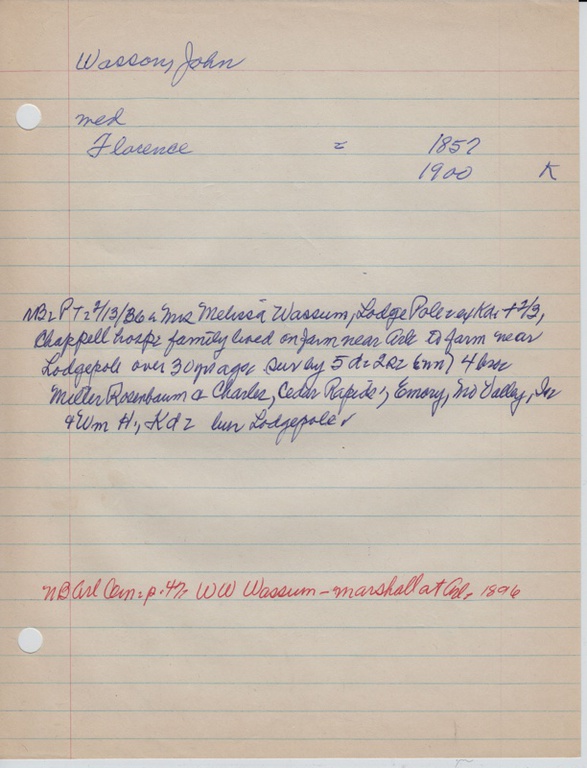 Wasson, John
med
Florence = 1857
1900 K
NB - PT - 2/13/36 - Mrs Melissa Wassum, Lodge Pole - ex Kd - + 2/3,
Chappell hosp - family lived on farm near Arl - to farm near
Lodgepole over 30 yr ago - sur by 5 d - 2 s - 4 bro
Miller Rosenbaum & Charles, Cedar Rapids, Emory, Mo Valley,
& Wm H., Kd - bur Lodgepole
NB Arl Cem - p. 47 - WW Wassum - marshall at Arl - 1896